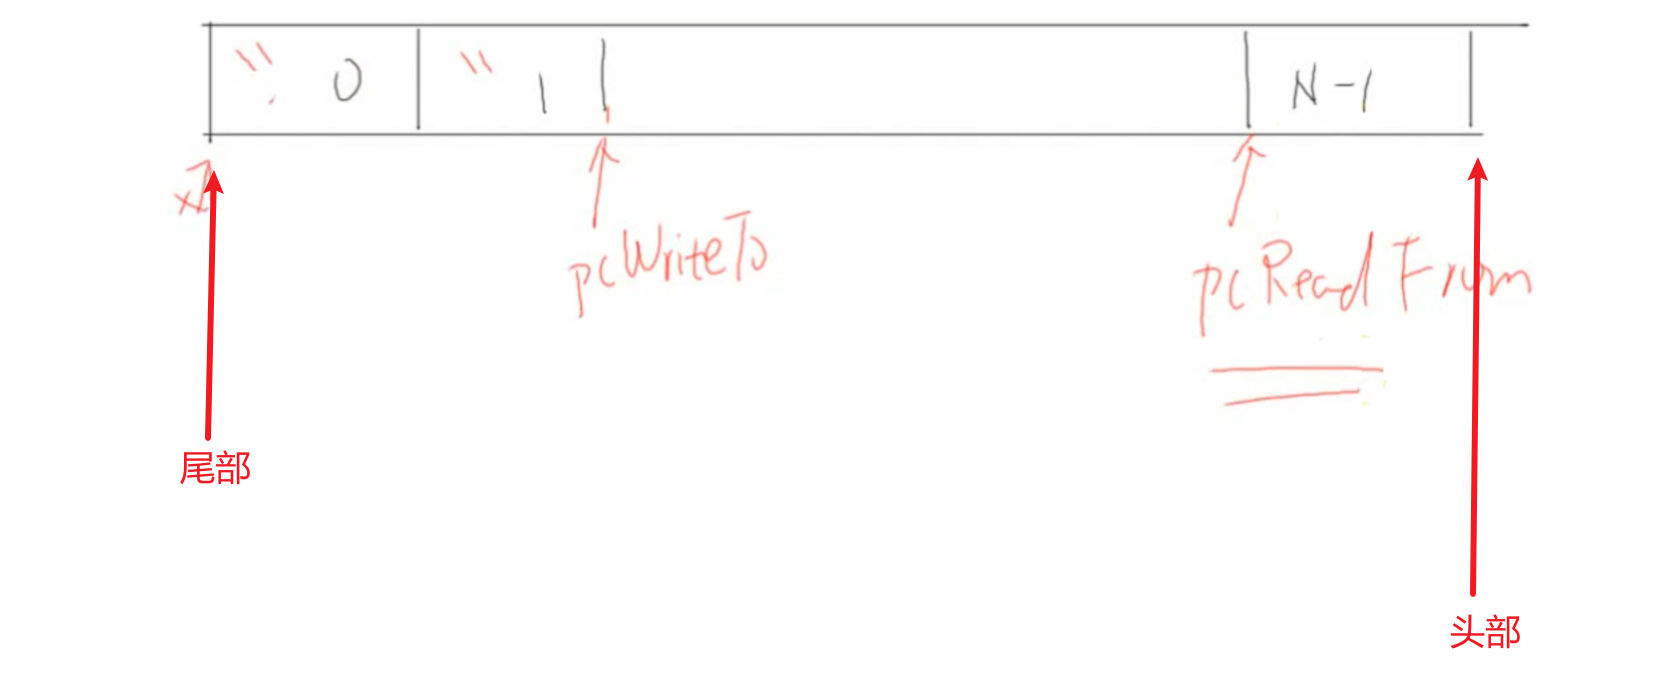 0 1 N-1
pcWriteTo
pcReadFrom
尾部
头部